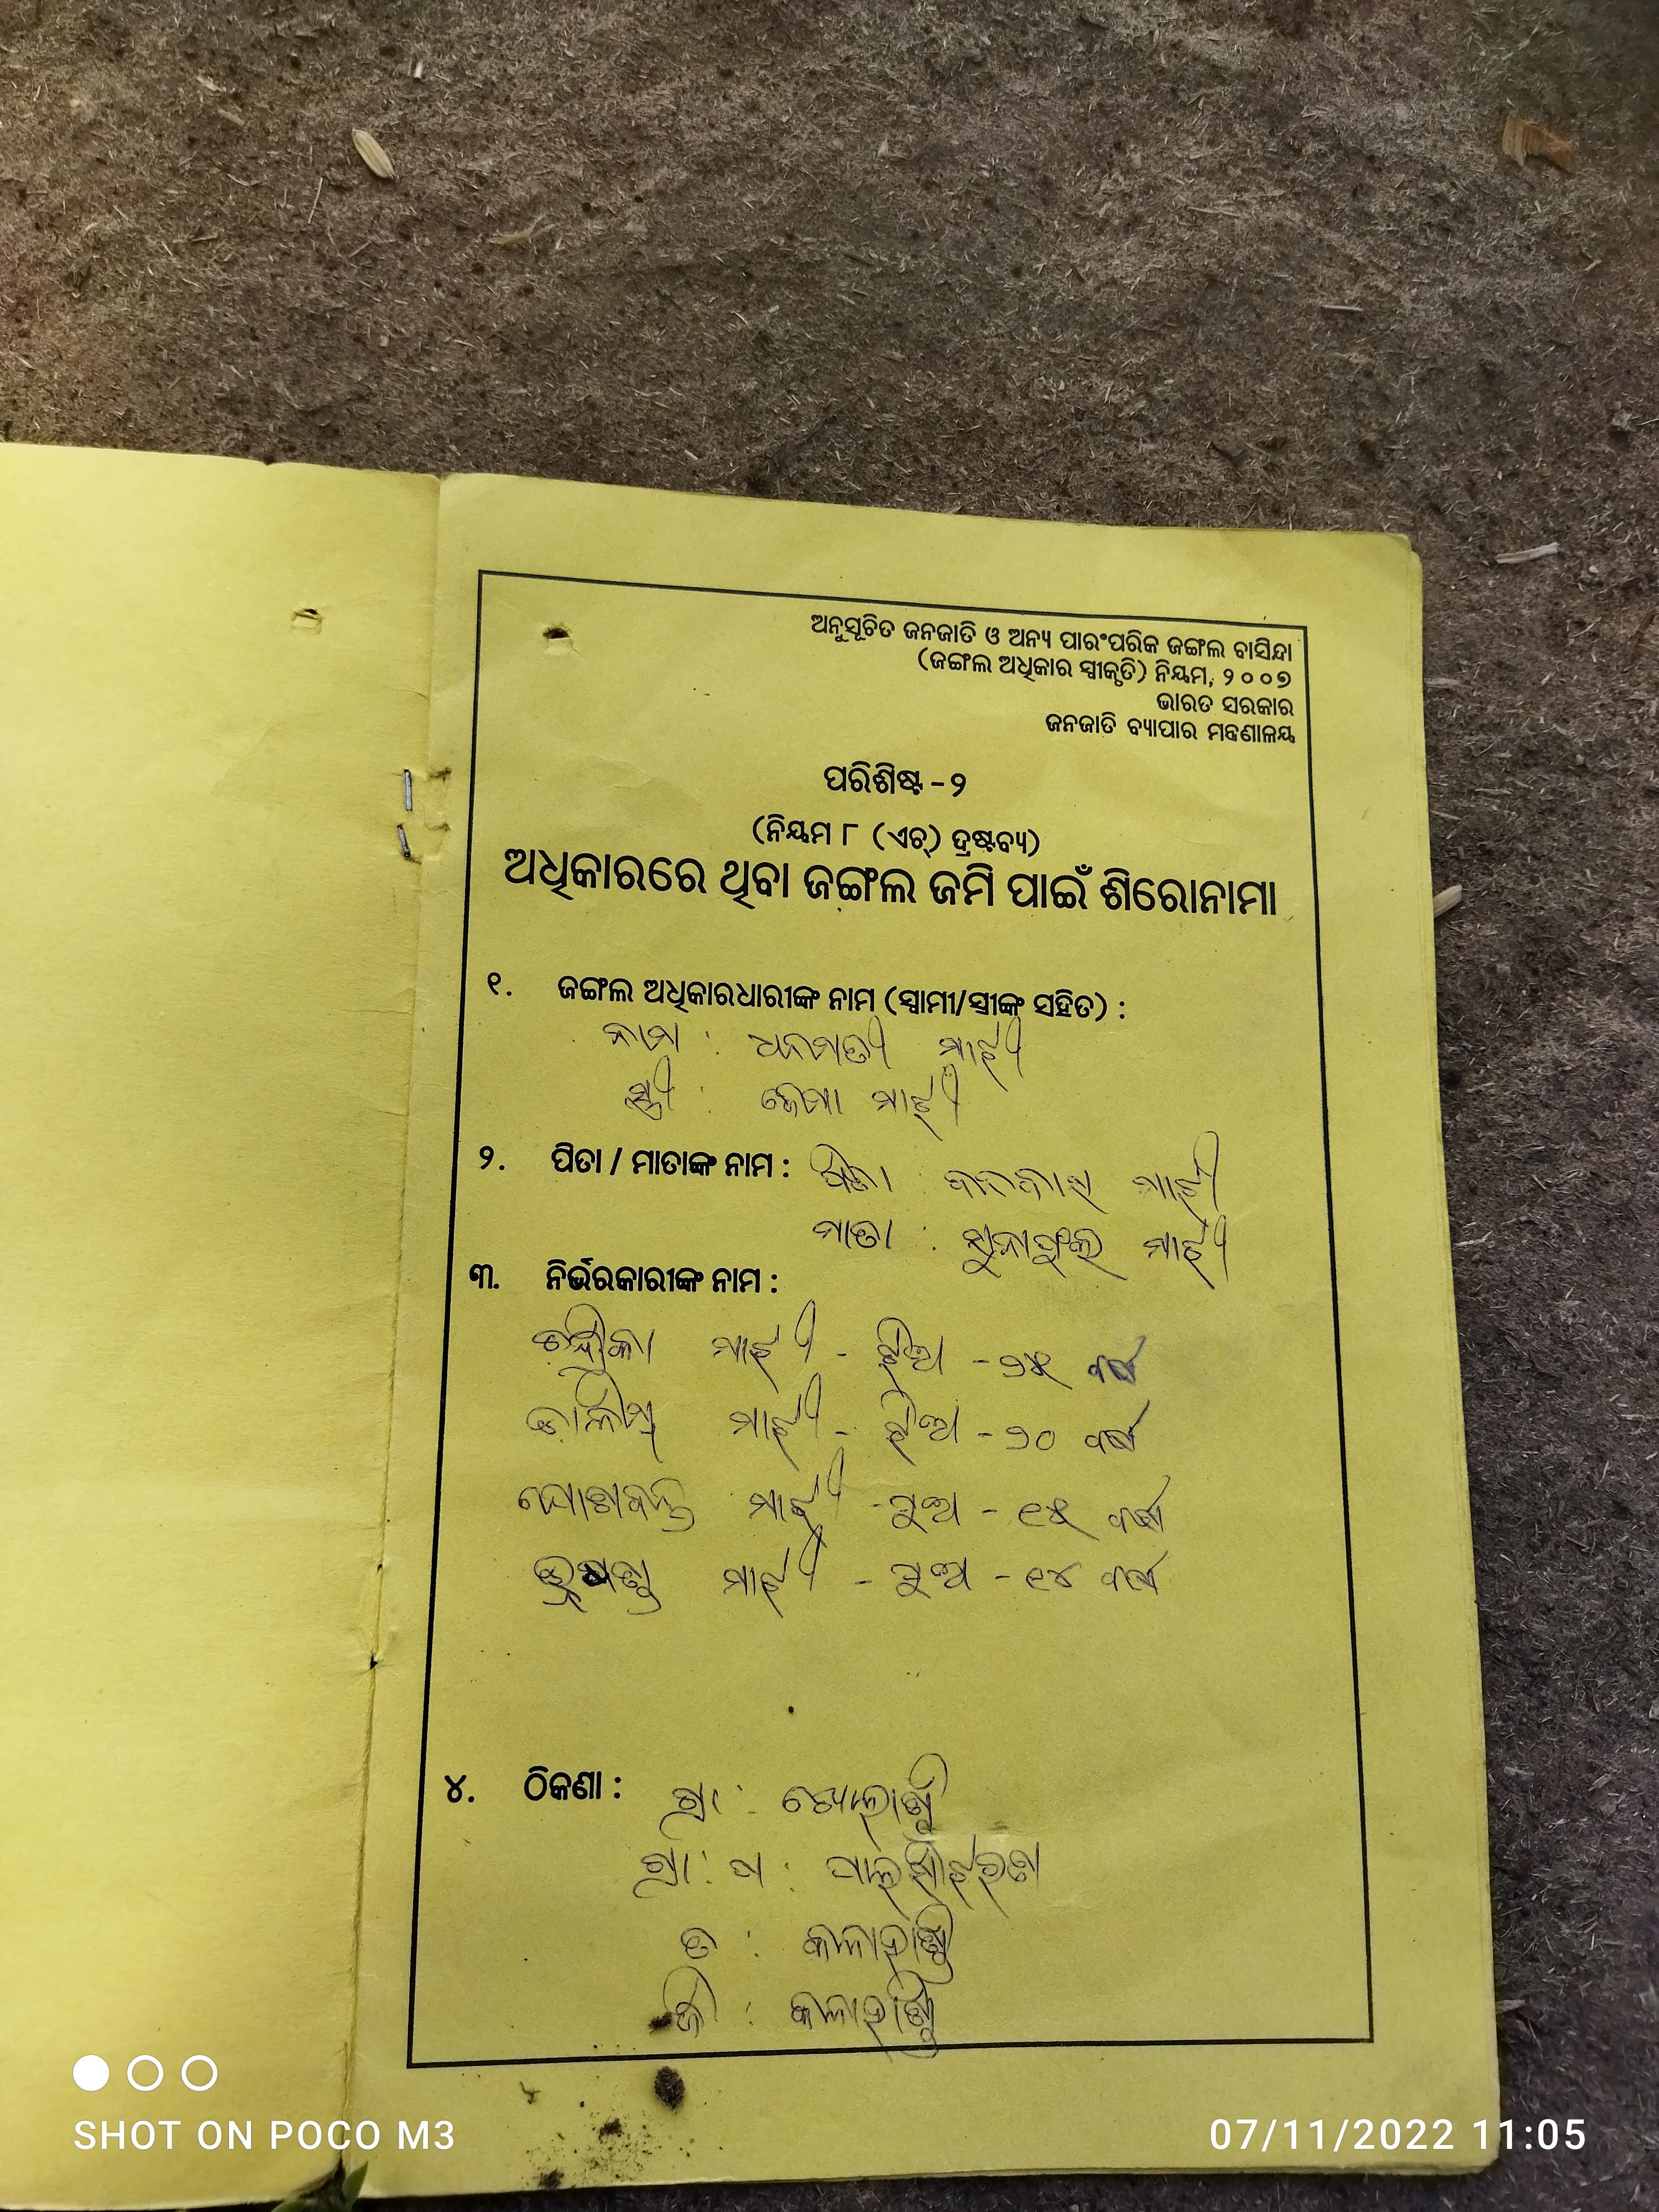 ଅନୁସୂଚିତ ଜନଜାତି ଓ ଅନ୍ୟ ପାରଂପରିକ ଜଙ୍ଗଲ ବାସିନ୍ଦା
(ଜଙ୍ଗଲ ଅଧିକାର ସ୍ୱୀକୃତି) ନିୟମ, ୨୦୦୭
ଭାରତ ସରକାର
ଜନଜାତି ବ୍ୟାପାର ମନ୍ତ୍ରଣାଳୟ
ପରିଶିଷ୍ଟ - ୨
(ନିୟମ ୮ (ଏଚ୍) ଦ୍ରଷ୍ଟବ୍ୟ)
ଅଧିକାରରେ ଥିବା ଜଙ୍ଗଲ ଜମି ପାଇଁ ଶିରୋନାମା
୧. ଜଙ୍ଗଲ ଅଧିକାରଧାରୀଙ୍କ ନାମ (ସ୍ୱାମୀ/ସ୍ତ୍ରୀଙ୍କ ସହିତ) :
ନାମ : ଧନମତୀ ମାଝୀ
ସ୍ତ୍ରୀ : ଜେମା ମାଝୀ
୨. ପିତା / ମାତାଙ୍କ ନାମ : ପିତା : ମାଝୀ
ମାତା : ମାଝୀ
୩. ନିର୍ଭରକାରୀଙ୍କ ନାମ :
ମାଝୀ - ଝିଅ - ୨୫ ବର୍ଷ
ମାଝୀ - ଝିଅ - ୨୦ ବର୍ଷ
ମାଝୀ - ପୁଅ - ୧୫ ବର୍ଷ
ମାଝୀ - ପୁଅ - ୧୪ ବର୍ଷ
୪. ଠିକଣା : ଗ୍ରା :
ଗ୍ରା : ପ :
ତ : କଳାହାଣ୍ଡି
ଜି : କଳାହାଣ୍ଡି
SHOT ON POCO M3
07/11/2022 11:05